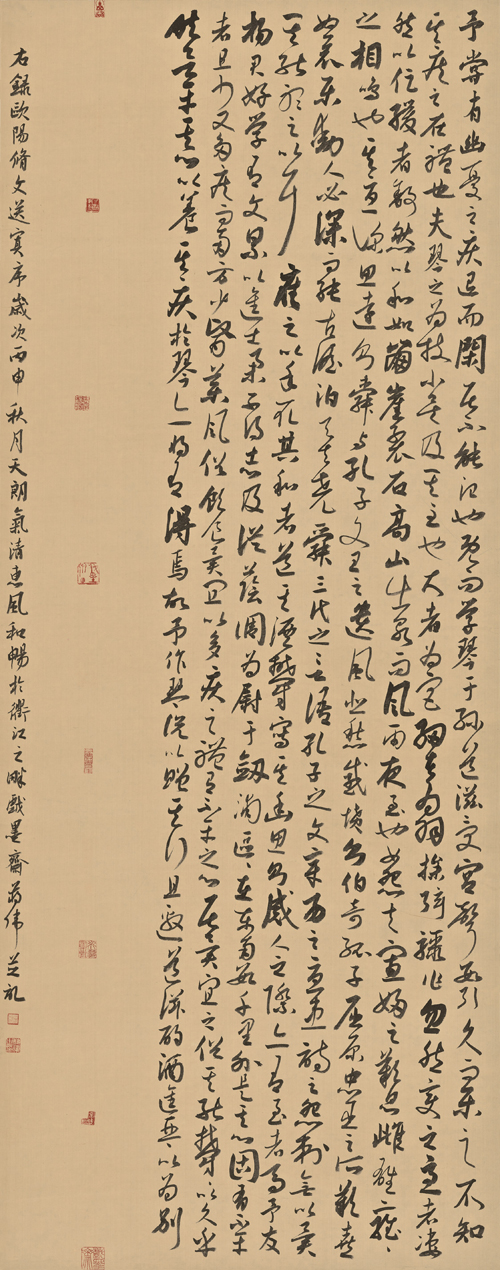 予嘗有幽憂之疾退而閑居不能治也既而學琴于孫道滋受宮聲數引久而樂之不知
其疾之在體也夫琴之為技小矣及其至也大者為宮細者為羽操弦驟作忽然變之急者凄
然以促緩者舒然以和如崩崖裂石高山出泉而風雨夜至也如怨夫寡婦之歎息雌雄雍雍
之相鳴也其憂深思遠則舜與孔子文王之遺風也悲愁感憤則伯奇孤子屈原忠臣之所歎喜
怒哀樂動人必深而純古淡泊與夫堯舜三代之言語孔子之文章易之憂患詩之怨刺無以異
其能聽之以耳應之以手取其和者道其湮鬱寫其幽思則感人之際亦有至者焉予友
楊君好學有文累以進士舉不得志及從蔭調為尉于劍浦區區在東南數千里外是其心固有不平
者且少又多疾而南方少醫藥風俗飲食異宜以多疾之體有不平之心居異宜之俗其能鬱鬱以久乎
然欲平其心以養其疾於琴亦將有得焉故予作琴說以贈其行且邀道滋酌酒進琴以為別
右錄歐陽脩文送寘序歲次丙申秋月天朗氣清惠風和暢於衢江之畔戲墨齋蔣偉